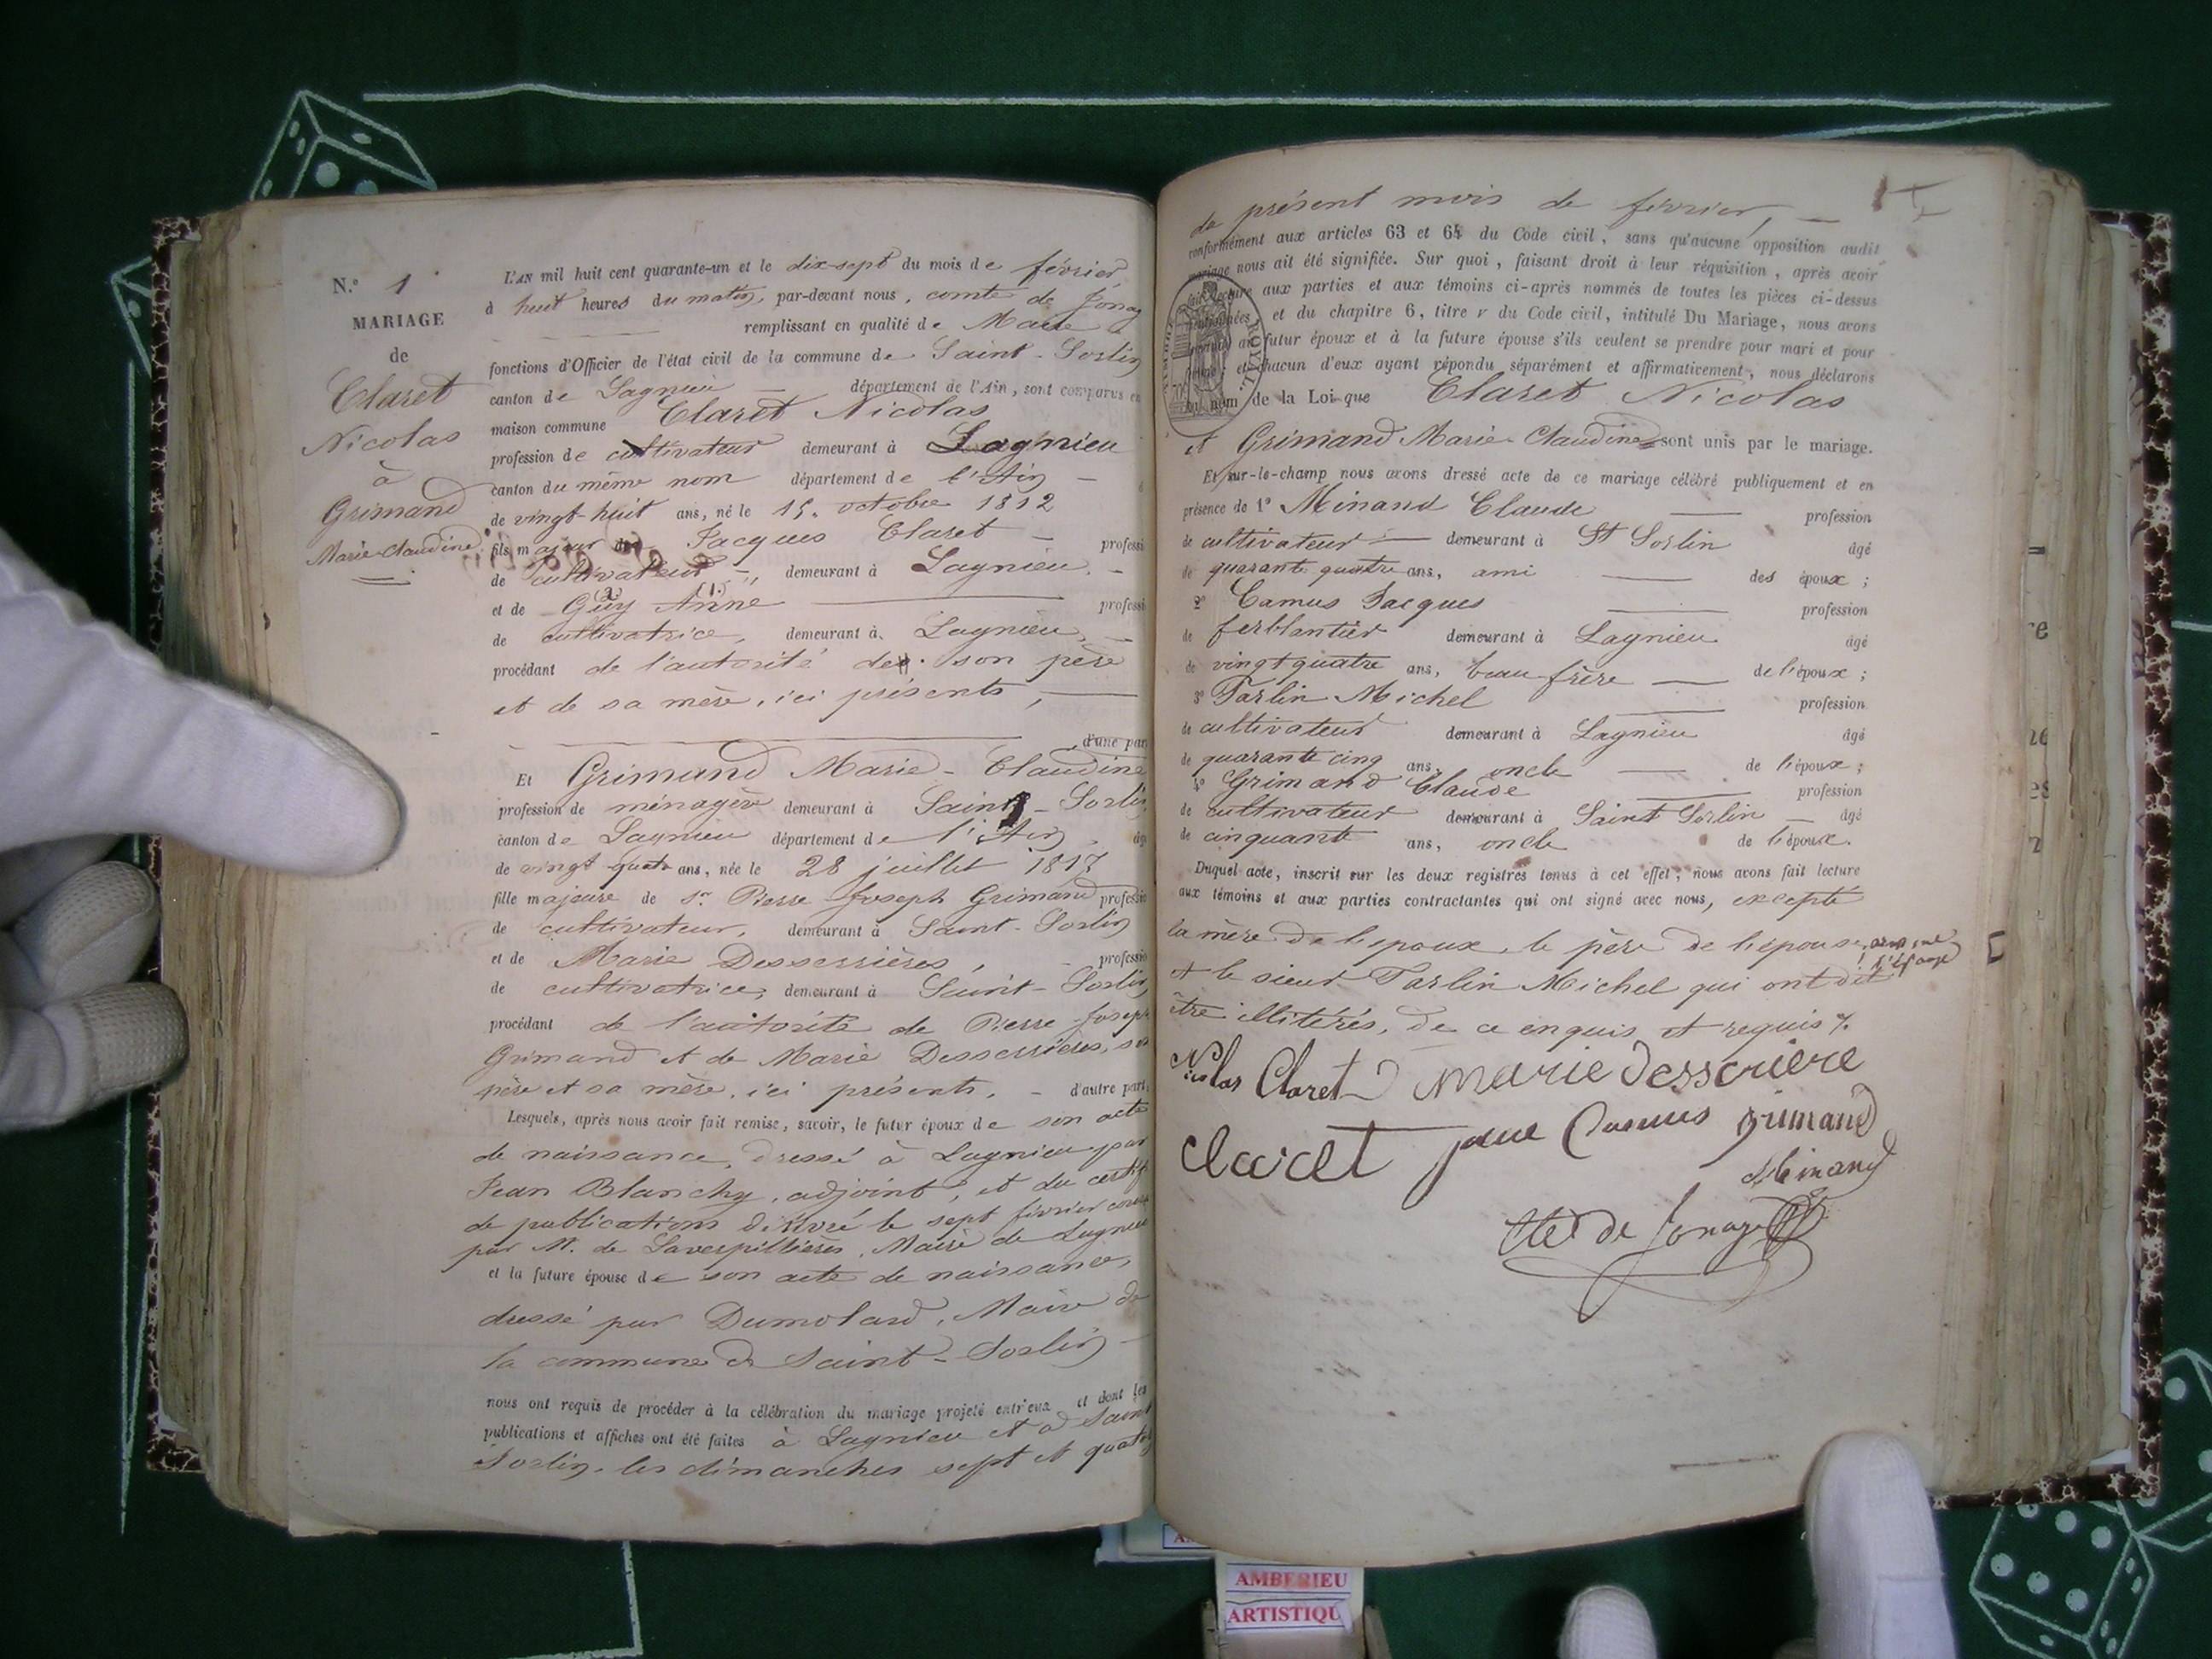 N.º 1
MARIAGE
de
Claret
Nicolas
à
Grimand
Marie-Claudine
L'AN mil huit cent quarante-un et le dix-sept du mois de février
à huit heures du matin, par-devant nous, comte de Jonag
remplissant en qualité de Maire
fonctions d'Officier de l'état civil de la commune de Saint-Sorlin
canton de Lagnieu département de l'Ain, sont comparus en
maison commune Claret Nicolas
profession de cultivateur demeurant à Lagnieu
canton du même nom département de l'Ain
de vingt-huit ans, né le 15. octobre 1812
fils majeur de Jacques Claret professi
de cultivateur demeurant à Lagnieu.
et de Guy Anne professi
de cultivatrice, demeurant à Lagnieu,
procédant de l'autorité de son père
et de sa mère, ici présents,
d'une par
Et Grimand Marie-Claudine
profession de ménagère demeurant à Saint-Sorlin
canton de Lagnieu département de l'Ain, âg
de vingt quatr ans, née le 28 juillet 1817
fille majeure de sr. Pierre Joseph Grimand professio
de cultivateur, demeurant à Saint-Sorlin
et de Marie Desserrières, professio
de cultivatrice, demeurant à Saint-Sorlin,
procédant de l'autorité de Pierre-Joseph
Grimand et de Marie Desserrières, ses
père et sa mère, ici présents, d'autre part,
Lesquels, après nous avoir fait remise, savoir, le futur époux de son acte
de naissance, dressé à Lagnieu par
Jean Blanchy, adjoint, et du certif
de publications délivré le sept février cour
par M. de Laverpillières, Maire de Lagnieu
et la future épouse de son acte de naissance,
dressé par Dumolard, Maire de
la commune de Saint-Sorlin
nous ont requis de procéder à la célébration du mariage projeté entr'eux et dont les
publications et affiches ont été faites à Lagnieu et à Saint
Sorlin, les dimanches sept et quatorz
du présent mois de février,
conformément aux articles 63 et 64 du Code civil, sans qu'aucune opposition audit
mariage nous ait été signifiée. Sur quoi, faisant droit à leur réquisition, après avoir
fait lecture aux parties et aux témoins ci-après nommés de toutes les pièces ci-dessus
mentionnées et du chapitre 6, titre v du Code civil, intitulé Du Mariage, nous avons
demandé au futur époux et à la future épouse s'ils veulent se prendre pour mari et pour
femme; et chacun d'eux ayant répondu séparément et affirmativement, nous déclarons
au nom de la Loi que Claret Nicolas
et Grimand Marie-Claudine sont unis par le mariage.
Et sur-le-champ nous avons dressé acte de ce mariage célébré publiquement et en
présence de 1º Minand Claude profession
de cultivateur demeurant à St Sorlin âgé
de quarante quatre ans, ami des époux;
2º Camus Jacques profession
de ferblantier demeurant à Lagnieu âgé
de vingt quatre ans, beau-frère de l'époux;
3º Tarlin Michel profession
de cultivateur demeurant à Lagnieu âgé
de quarante cinq ans, oncle de l'époux;
4º Grimand Claude profession
de cultivateur demeurant à Saint Sorlin âgé
de cinquante ans, oncle de l'épouse.
Duquel acte, inscrit sur les deux registres tenus à cet effet, nous avons fait lecture
aux témoins et aux parties contractantes qui ont signé avec nous, excepté
la mère de l'époux, le père de l'épouse,
et le sieur Tarlin Michel qui ont dit
être illitérés, de ce enquis et requis %.
Nicolas Claret marie desseriere
claret Camus grimand
Minand
Cte de Jonage
AMBERIEU
ARTISTIQU